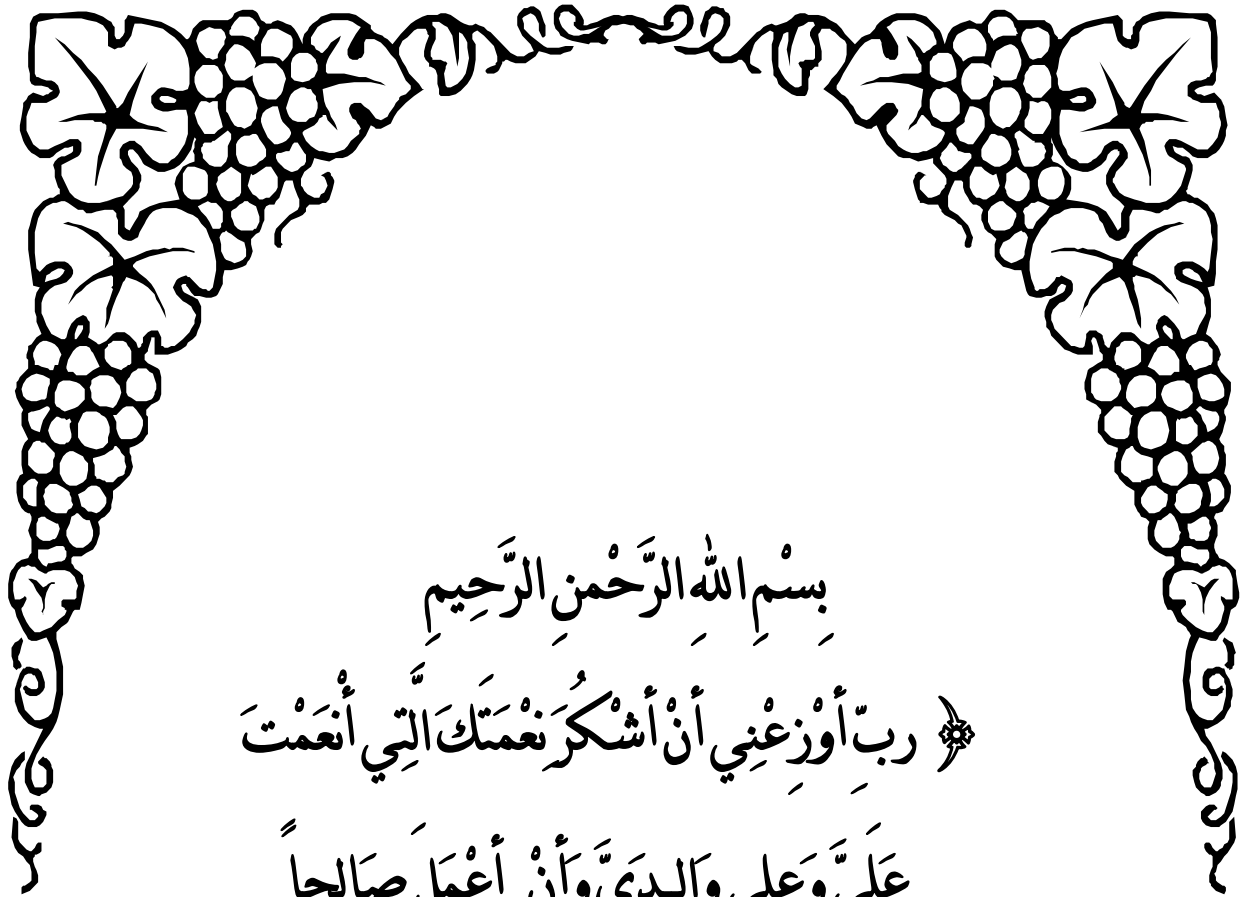 بِسْمِ اللهِ الرَّحْمنِ الرَّحِيمِ
﴿ ربِّ أَوْزِعْنِي أَنْ أَشْكُرَ نِعْمَتَكَ الَّتِي أَنْعَمْتَ
عَلَيَّ وَعَلى وَالِدَيَّ وَأَنْ أَعْمَلَ صَالِحاً